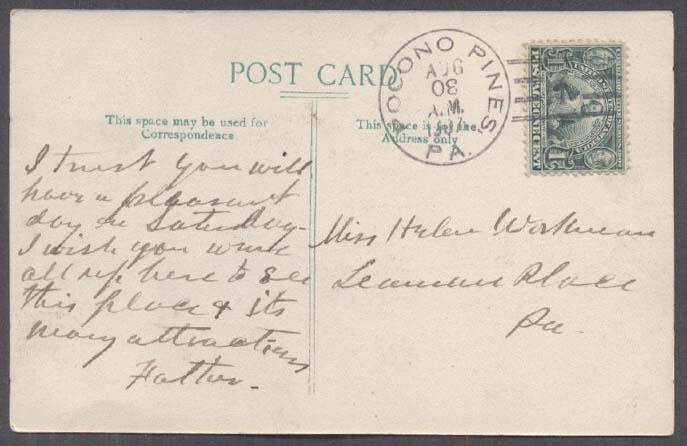 POST CARD
This space may be used for
Correspondence
This space is for the
Address only
POCONO PINES
AUG
30
A.M.
1907
PA.
1 POSTAGE ONE CENT 1
I trust you will
have a pleasant
day on Saturday-
I wish you were
all up here to see
this place & its
many attractions
Father.
Miss Helen Workman
Leaman Place
Pa.